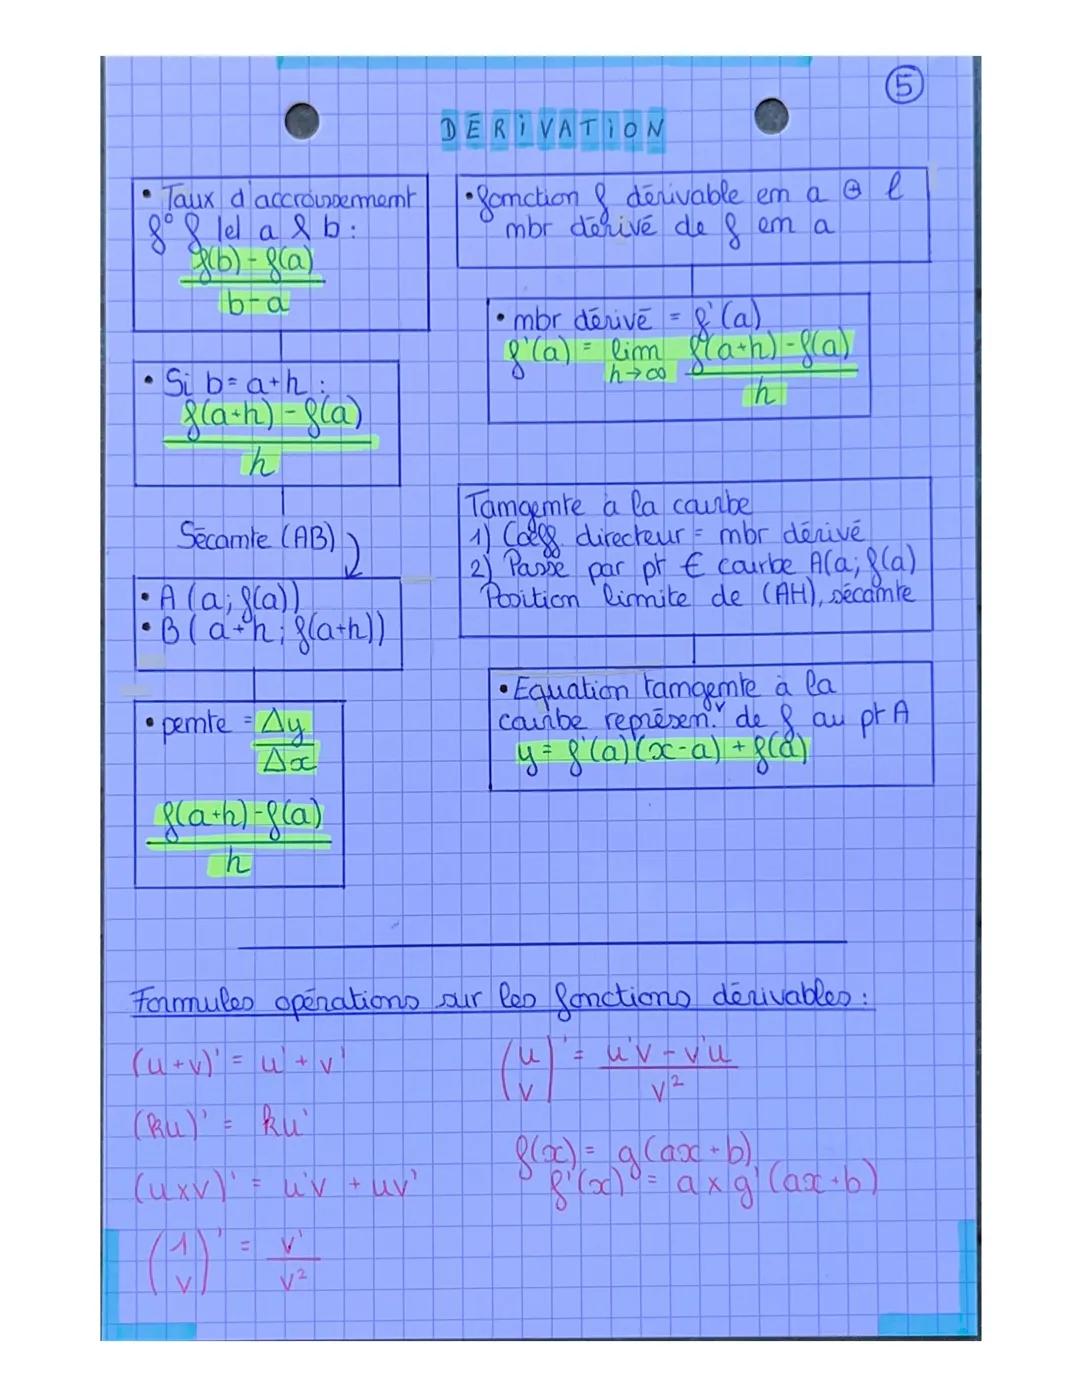 5
DERIVATION
• Taux d'accroissement
f° f /e/ a & b :
f(b) - f(a)
b - a
• Si b = a+h :
f(a+h) - f(a)
h
Sécante (AB)
• A (a; f(a))
• B (a+h; f(a+h))
• pente = Δy
Δx
f(a+h) - f(a)
h
• fonction f dérivable en a ⊕ l
nbr dérivé de f en a
• nbr dérivé = f'(a)
f'(a) = lim f(a+h) - f(a)
h→∞
h
Tangente à la courbe
1) Coeff. directeur = nbr dérivé
2) Passe par pt € courbe A(a; f(a)
Position limite de (AH), sécante
• Equation tangente à la
courbe représen.v de f au pt A
y = f'(a)(x-a) + f(a)
Formules opérations sur les fonctions dérivables :
(u+v)' = u' + v'
(ku)' = ku'
(uxv)' = u'v + uv'
(1/v)' = v'
v²
(u/v)' = u'v - v'u
v²
f(x) = g(ax+b)
f'(x) = a x g'(ax+b)